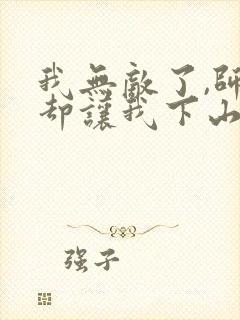 我無敵了,師
却讓我下山
强子